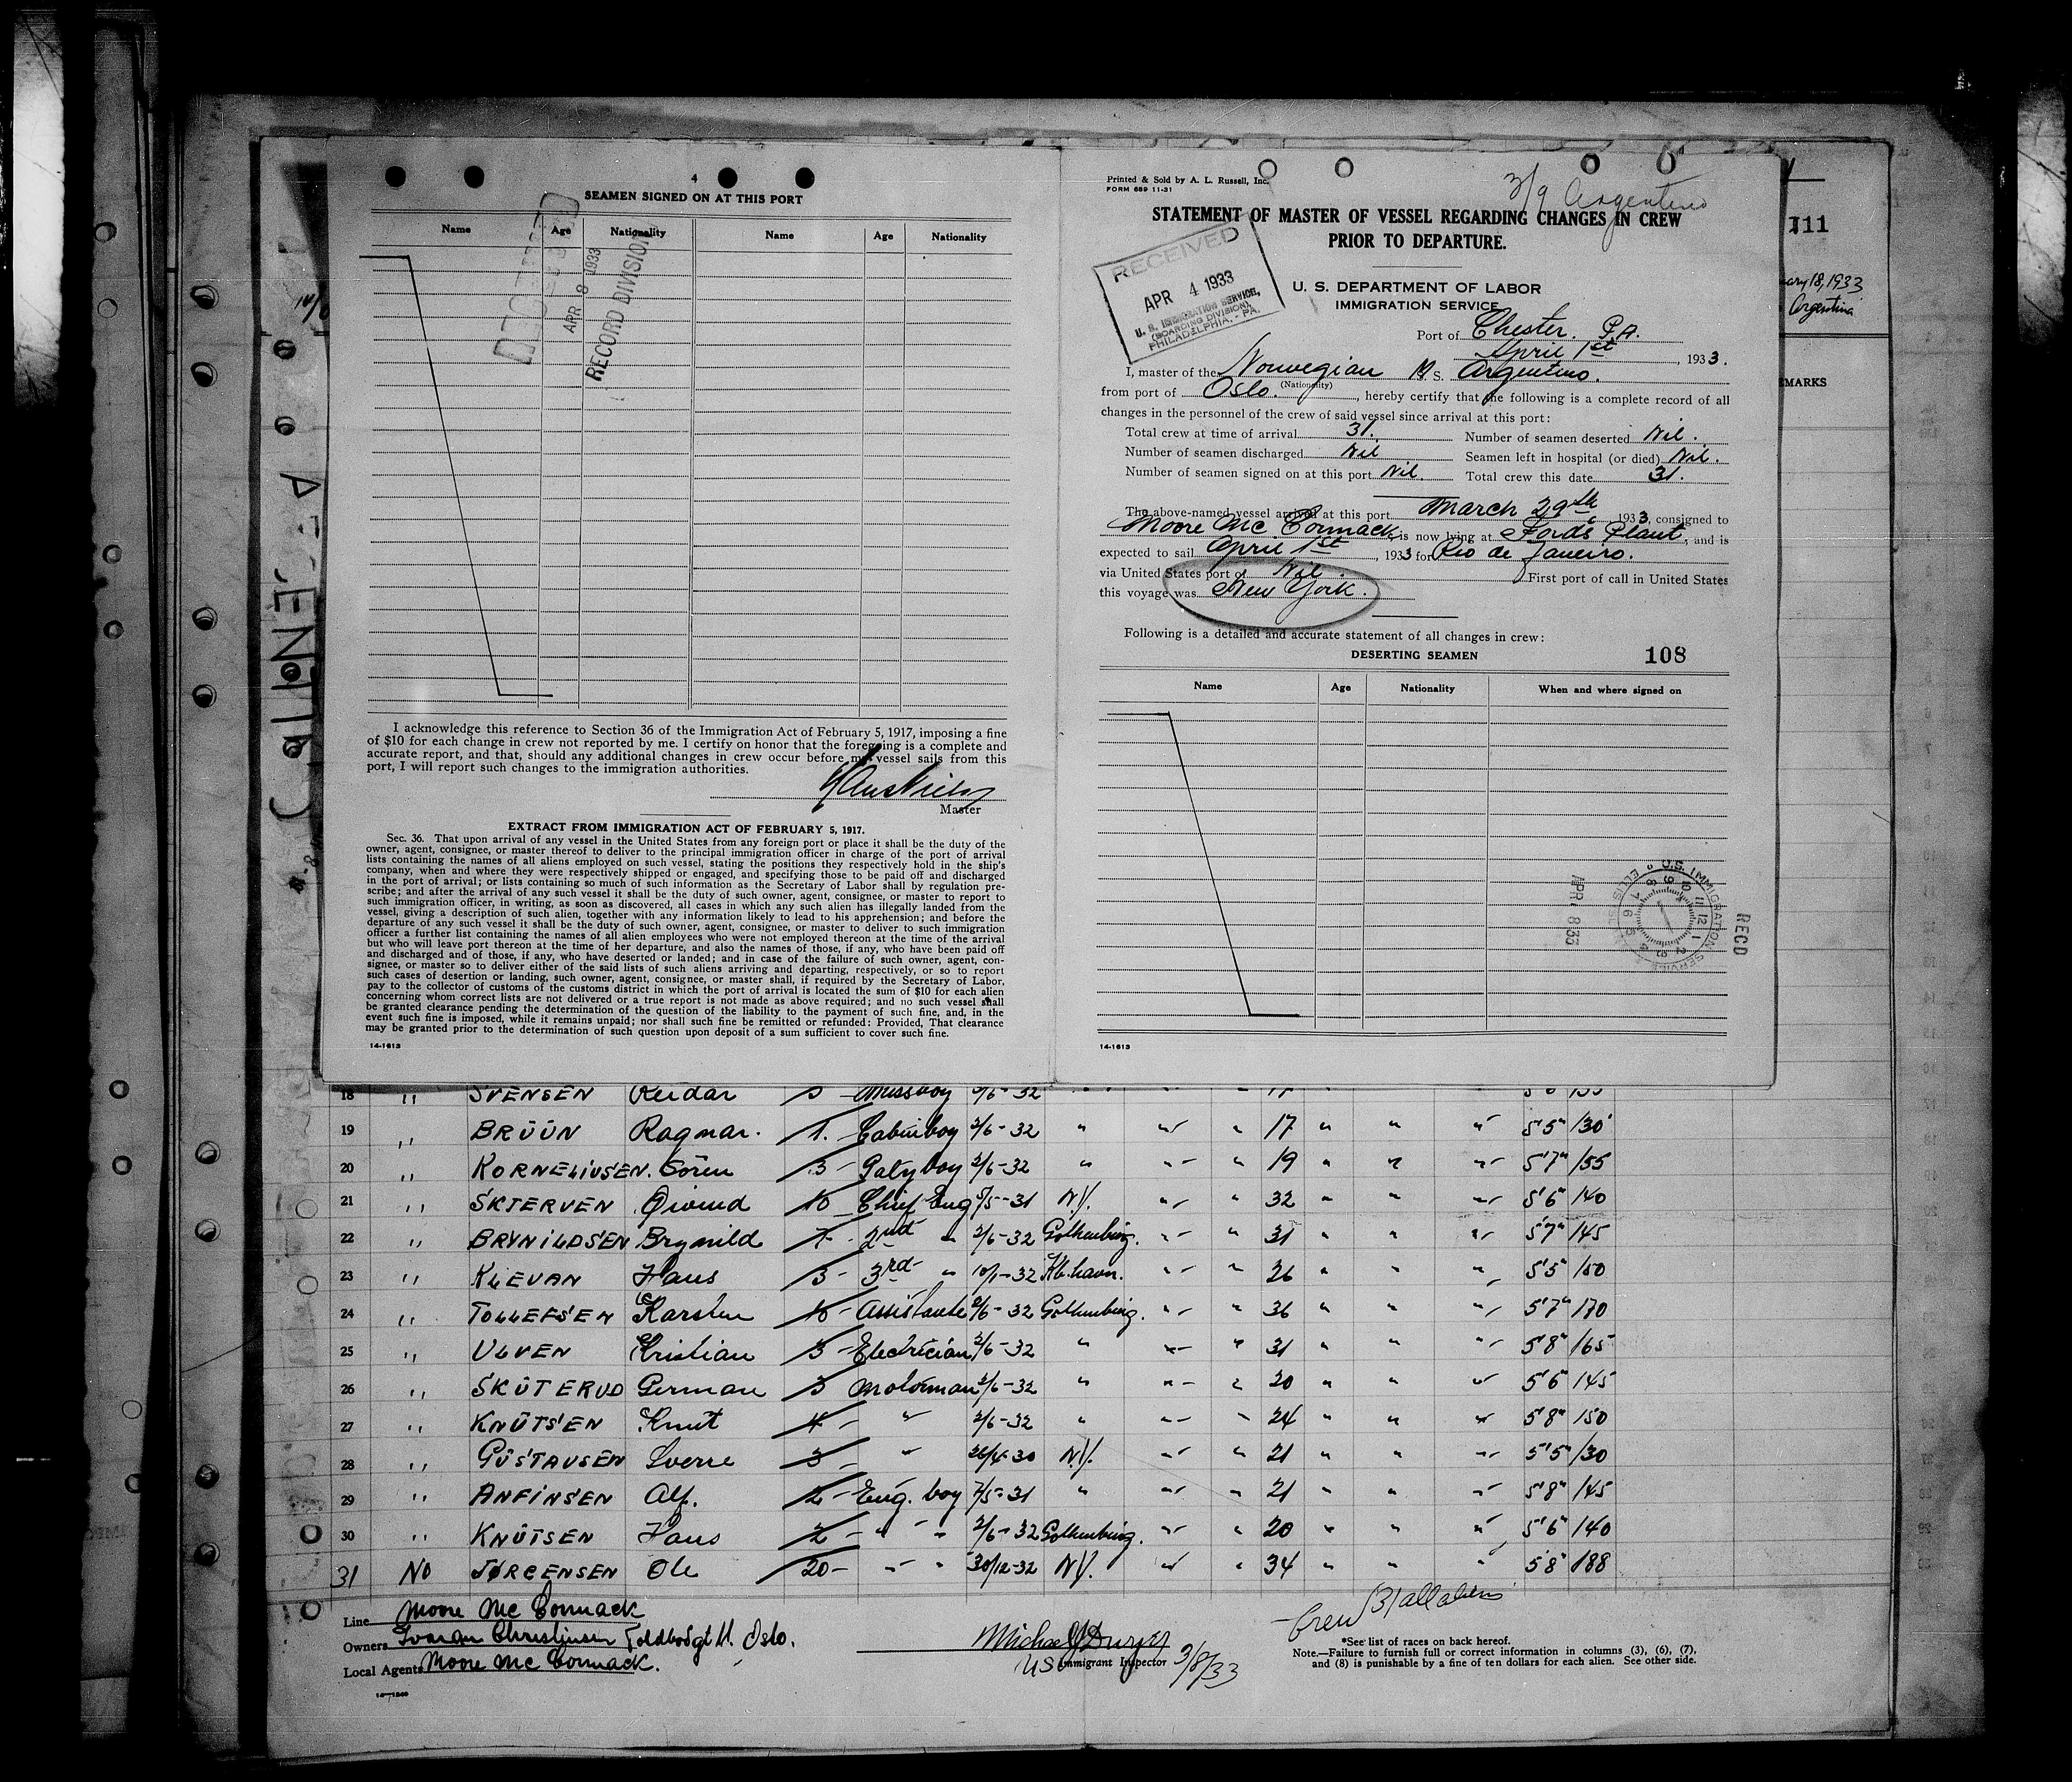 4
SEAMEN SIGNED ON AT THIS PORT
Name Age Nationality Name Age Nationality
APR 8 1933
RECORD DIVISION
I acknowledge this reference to Section 36 of the Immigration Act of February 5, 1917, imposing a fine
of $10 for each change in crew not reported by me. I certify on honor that the foregoing is a complete and
accurate report, and that, should any additional changes in crew occur before my vessel sails from this
port, I will report such changes to the immigration authorities.
Master
EXTRACT FROM IMMIGRATION ACT OF FEBRUARY 5, 1917.
Sec. 36. That upon arrival of any vessel in the United States from any foreign port or place it shall be the duty of the
owner, agent, consignee, or master thereof to deliver to the principal immigration officer in charge of the port of arrival
lists containing the names of all aliens employed on such vessel, stating the positions they respectively hold in the ship's
company, when and where they were respectively shipped or engaged, and specifying those to be paid off and discharged
in the port of arrival; or lists containing so much of such information as the Secretary of Labor shall by regulation pre-
scribe; and after the arrival of any such vessel it shall be the duty of such owner, agent, consignee, or master to report to
such immigration officer, in writing, as soon as discovered, all cases in which any such alien has illegally landed from the
vessel, giving a description of such alien, together with any information likely to lead to his apprehension; and before the
departure of any such vessel it shall be the duty of such owner, agent, consignee, or master to deliver to such immigration
officer a further list containing the names of all alien employees who were not employed thereon at the time of the arrival
but who will leave port thereon at the time of her departure, and also the names of those, if any, who have been paid off
and discharged and of those, if any, who have deserted or landed; and in case of the failure of such owner, agent, con-
signee, or master so to deliver either of the said lists of such aliens arriving and departing, respectively, or so to report
such cases of desertion or landing, such owner, agent, consignee, or master shall, if required by the Secretary of Labor,
pay to the collector of customs of the customs district in which the port of arrival is located the sum of $10 for each alien
concerning whom correct lists are not delivered or a true report is not made as above required; and no such vessel shall
be granted clearance pending the determination of the question of the liability to the payment of such fine, and, in the
event such fine is imposed, while it remains unpaid; nor shall such fine be remitted or refunded: Provided, That clearance
may be granted prior to the determination of such question upon deposit of a sum sufficient to cover such fine.
14-1613
Printed & Sold by A. L. Russell, Inc.
FORM 689 11-31
3/9 Argentino
STATEMENT OF MASTER OF VESSEL REGARDING CHANGES IN CREW
PRIOR TO DEPARTURE.
RECEIVED
APR 4 1933
U. S. IMMIGRATION SERVICE,
(BOARDING DIVISION),
PHILADELPHIA, - PA.
U. S. DEPARTMENT OF LABOR
IMMIGRATION SERVICE
Port of Chester. P.A.
April 1st, 1933.
I, master of the Norwegian M S. Argentino.
(Nationality)
from port of Oslo., hereby certify that the following is a complete record of all
changes in the personnel of the crew of said vessel since arrival at this port:
Total crew at time of arrival 31. Number of seamen deserted Nil.
Number of seamen discharged Nil Seamen left in hospital (or died) Nil.
Number of seamen signed on at this port Nil. Total crew this date 31.
The above-named vessel arrived at this port March 29th, 1933, consigned to
Moore Mc Cormack, is now lying at Fords Plant, and is
expected to sail April 1st, 1933 for Rio de Janeiro.
via United States port of Nil. First port of call in United States
this voyage was New York.
Following is a detailed and accurate statement of all changes in crew:
DESERTING SEAMEN 108
Name Age Nationality When and where signed on
U.S. IMMIGRATION SERVICE ELLIS ISLAND
APR 8 33
RECD
14-1613
111
ary 18, 1933
Argentina
EMARKS
18 " SVENSEN Reidar 5 Messboy 2/6-32 " " " 17
19 " BRÜÜN Ragnar. 1. Cabinboy 2/6-32 " " " 17 " " " 5'5" 130
20 " KORNELIUSEN. Sören 3 - Galyboy 2/6-32 " " " 19 " " " 5'7" 155
21 " SKTERVEN Öivind 10 Chief Eng 5/5-31 N.Y. " " 32 " " " 5'6" 140
22 " BRYNILDSEN Brynild 7 - 2nd " 2/6-32 Gothenburg. " " 31 " " " 5'7" 145
23 " KLEVAN Hans 3 - 3rd " 10/1-32 Kb.havn. " " 26 " " " 5'5" 150
24 " TOLLEFSEN Karsten 10 - Assistante 2/6-32 Gothenburg. " " 36 " " " 5'7" 170
25 " ULVEN Kristian 3 - Electrician 2/6-32 " " " 31 " " " 5'8" 165
26 " SKÜTERUD German 3 Motorman 2/6-32 " " " 20 " " " 5'6" 145
27 " KNÜTSEN Knut 4 - " 2/6-32 " " " 24 " " " 5'8" 150
28 " GÜSTAUSEN Sverre 3 - " 26/4-30 N.Y. " " 21 " " " 5'5" 130
29 " ANFINSEN Alf. 2 - Eng. boy 7/5-31 " " " 21 " " " 5'8" 145
30 " KNÜTSEN Hans 2 - " " 2/6-32 Gothenburg. " " 20 " " " 5'6" 140
31 No JØRGENSEN Ole 20 - " " 30/12-32 N.Y. " " 34 " " " 5'8" 188
Line Moore Mc Cormack
Owners Ivaran Christensen Toldbodgt 11. Oslo.
Local Agents Moore Mc Cormack.
Michael J Dwyer
US Immigrant Inspector 3/8/33
Crew (31) all aliens
*See list of races on back hereof.
Note.—Failure to furnish full or correct information in columns (3), (6), (7),
and (8) is punishable by a fine of ten dollars for each alien. See other side.